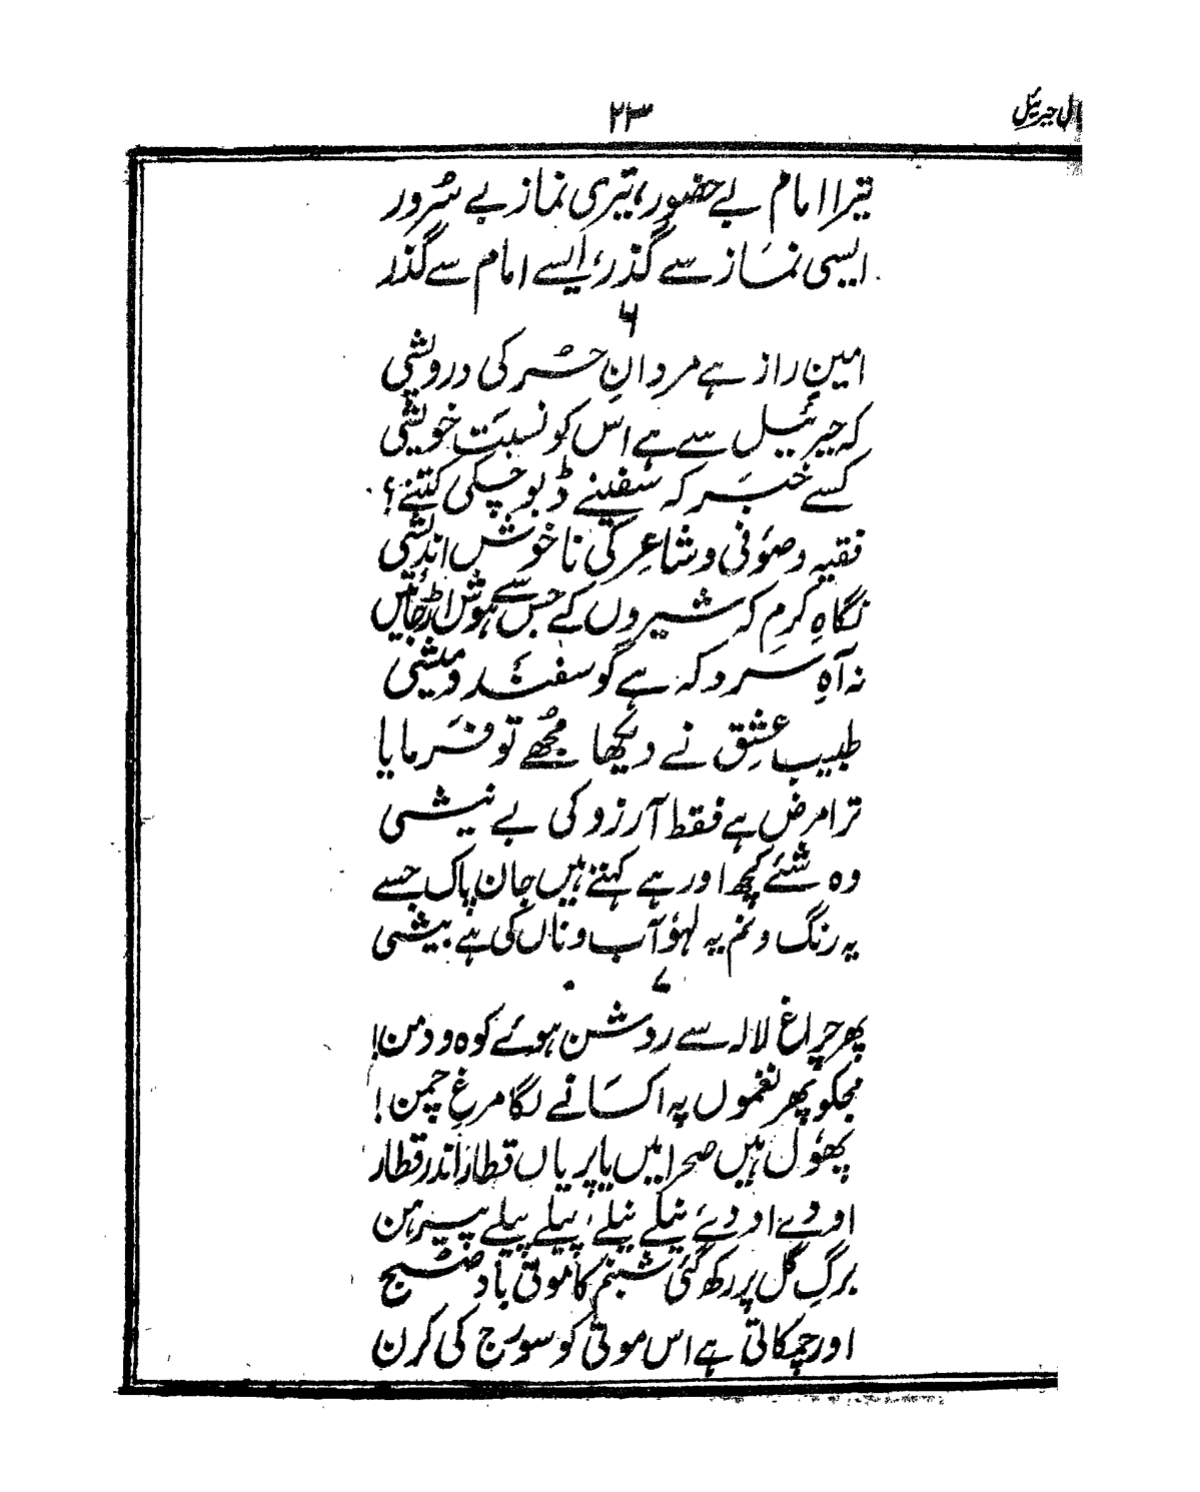 بالِ جبرئیل
۲۳
تیرا امام بے حضور، تیری نماز بے سُرور
ایسی نماز سے گذر، ایسے امام سے گذر
۶
امینِ راز ہے مردانِ حُر کی درویشی
کہ جبرئیل سے ہے اس کو نسبتِ خویشی
کسے خبر کہ سفینے ڈبو چکی کتنے؟
فقیہ و صوفی و شاعر کی نا خوش اندیشی
نگاہِ کرم کہ شیروں کے جس سے ہوش اڑ جائیں
نہ آہِ سرد کہ ہے گوسفندی و میشی
طبیبِ عشق نے دیکھا مجھے تو فرمایا
ترا مرض ہے فقط آرزو کی بے نیشی
وہ شئے کچھ اور ہے کہتے ہیں جانِ پاک جسے
یہ رنگ و نم یہ لہو آب و ناں کی ہے بیشی
۷
پھر چراغِ لالہ سے روشن ہوئے کوہ و دمن!
مجکو پھر نغموں پہ اکسانے لگا مرغِ چمن!
پھول ہیں صحرا میں یا پریاں قطار اندر قطار
اودے اودے نیلے نیلے، پیلے پیلے پیرہن
برگِ گل پر رکھ گئی شبنم کا موتی بادِ صبح
اور چمکاتی ہے اس موتی کو سورج کی کرن